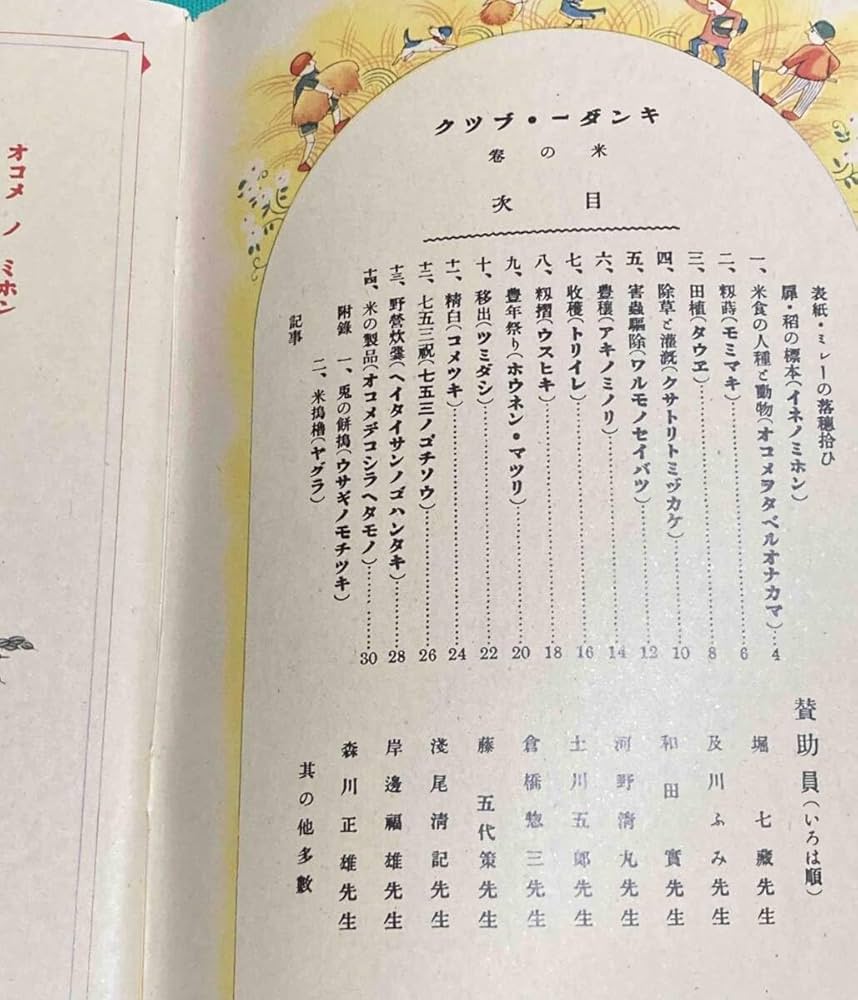 キンダー・ブツク
米の卷
目次
表紙・ミレーの落穗拾ひ
扉・稻の標本(イネノミホン)
一、米食の人種と動物(オコメヲタベルオナカマ)…4
二、籾蒔(モミマキ)…6
三、田植(タウヱ)…8
四、除草と灌漑(クサトリトミヅカケ)…10
五、害蟲驅除(ワルモノセイバツ)…12
六、豐穰(アキノミノリ)…14
七、收穫(トリイレ)…16
八、籾摺(ウスヒキ)…18
九、豐年祭り(ホウネン・マツリ)…20
十、移出(ツミダシ)…22
十一、精白(コメツキ)…24
十二、七五三祝(七五三ノゴチソウ)…26
十三、野營炊爨(ヘイタイサンノゴハンタキ)…28
十四、米の製品(オコメデコシラヘタモノ)…30
附錄 一、兎の餅搗(ウサギノモチツキ)
二、米搗櫓(ヤグラ)
記事
賛助員(いろは順)
堀七藏先生
及川ふみ先生
和田實先生
河野清丸先生
土川五郎先生
倉橋惣三先生
藤五代策先生
淺尾清記先生
岸邊福雄先生
森川正雄先生
其の他多數
オコメ ノ ミホン